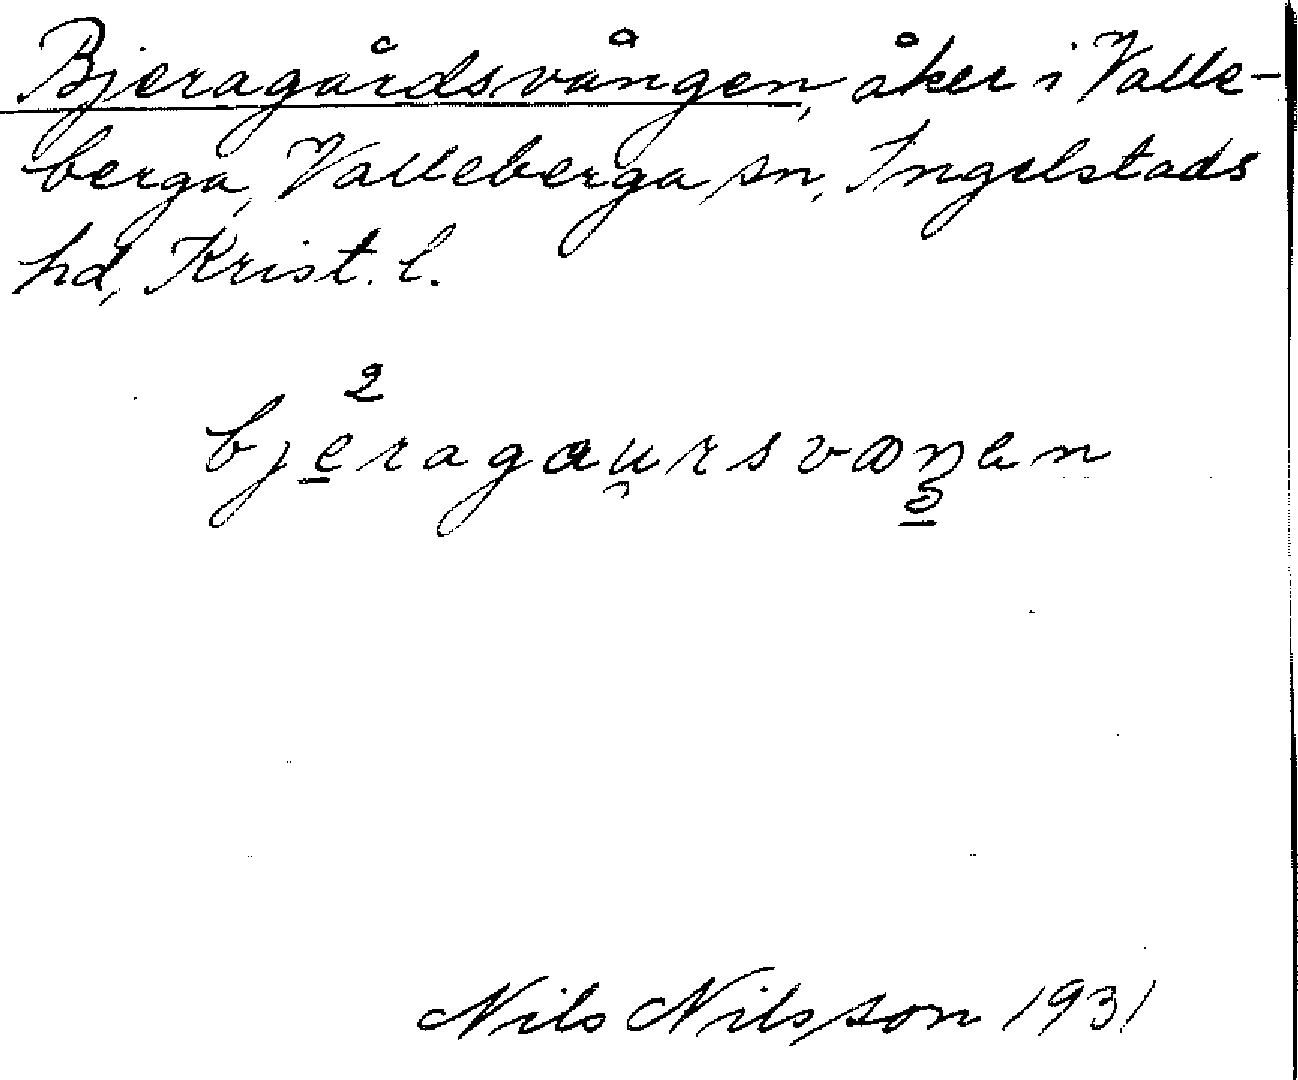 Bjeragårdsvången, åker i Valle-
berga, Valleberga sn, Ingelstads
hd, Krist. l.
2
bjeragau̯rsvaŋen
Nils Nilsson 1931